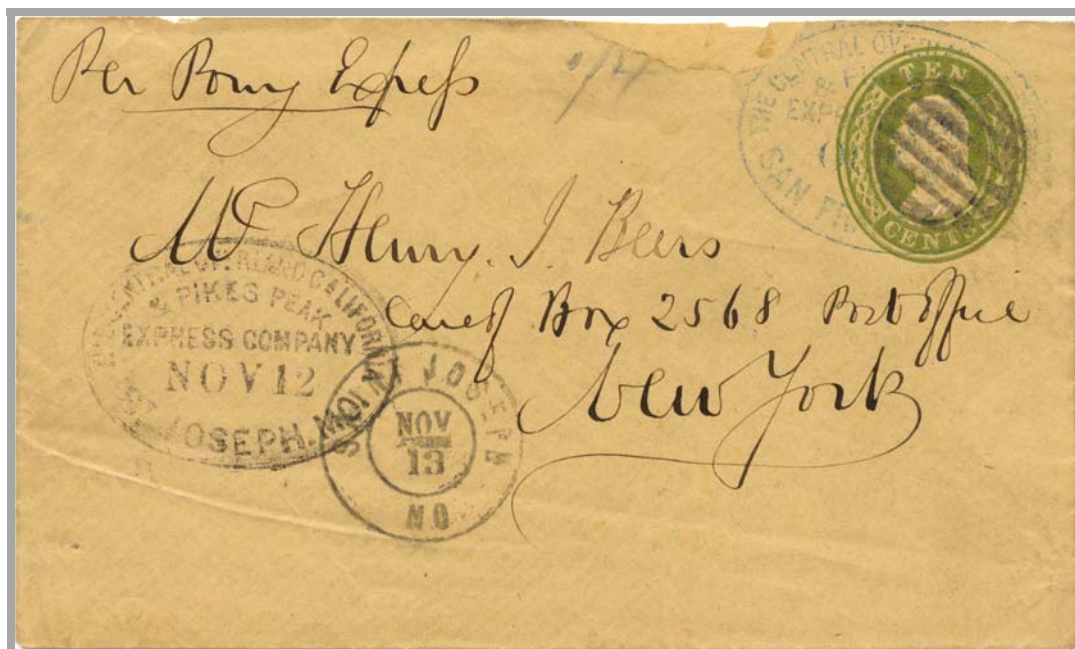 Per Pony Express
1/4
THE CENTRAL OVERLAND
EXP
SAN FR
TEN
CENTS
Mr Henry. J. Beers
Care of Box 2568 Post Office
New York
CENTRAL OVERLAND CALIFORNIA
& PIKES PEAK
EXPRESS COMPANY
NOV 12
ST JOSEPH. MO
ST JOSEPH
NOV
13
MO